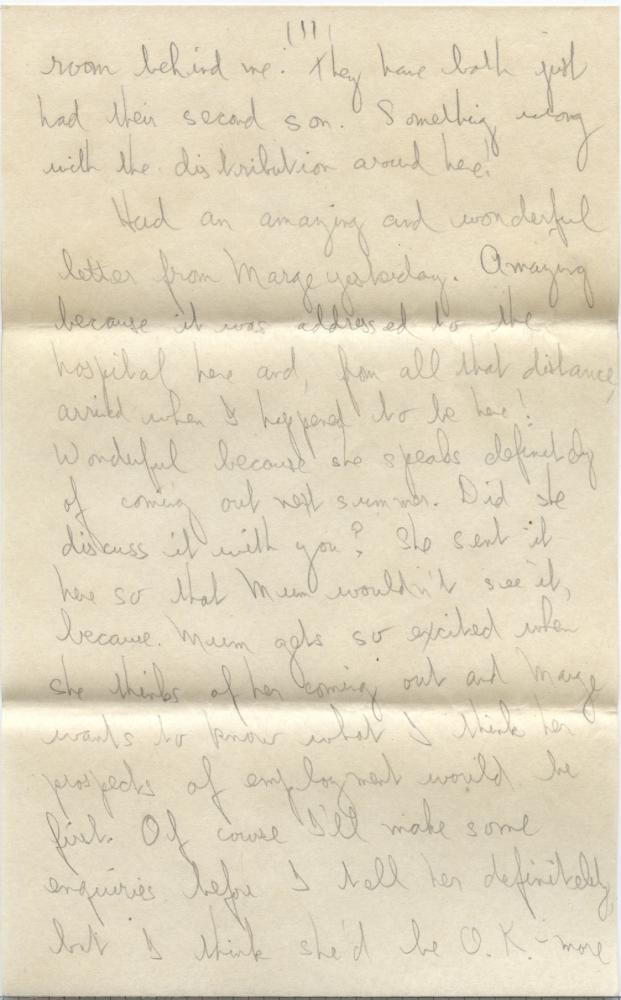 room behind me! They have both just
had their second son. Something wrong
with the distribution around here!
Had an amazing and wonderful
letter from Marge yesterday. Amazing
because it was addressed to the
hospital here and, from all that distance,
arrived when I happened to be here!
Wonderful because she speaks definitely
of coming out next summer. Did she
discuss it with you? She sent it
here so that Mum wouldn't see it,
because Mum gets so excited when
she thinks of her coming out and Marge
wants to know what I think her
prospects of employment would be
first. Of course I'll make some
enquiries before I tell her definitely,
but I think she'd be O.K. - more